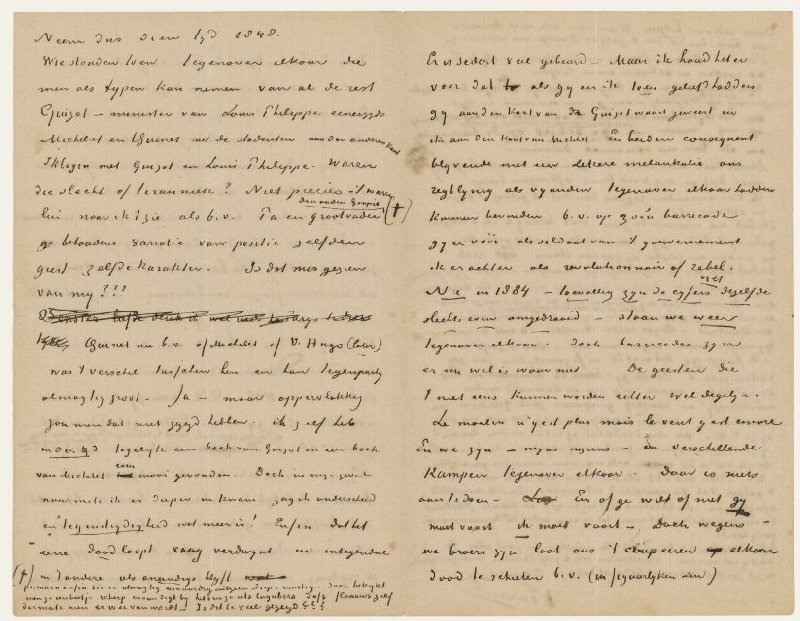 Neem dus dien tyd 1848.
Wie stonden toen tegenover elkaar die
men als typen kan nemen van al de rest
Guizot – minister van Louis Philippe eenerzyds
Michelet en Quinet met de studenten aan den anderen kant
Ik begin met Guizot en Louis Philippe. Waren
die slecht of tirannniek? Niet precies – 't waren
den ouden Goupil
lui naar ik 't zie als b.v. Pa en grootvader (†)
behoudens variatie van positie zelfden
geest zelfde karakter. Is dat mis gezien
van my???
Quinet nu b.v. of Michelet of V. Hugo (later)
was 't verschil tusschen hen en hun tegenparty
almachtig groot – Ja – maar oppervlakkig
zou men dat niet gezegd hebben. ik zelf heb
tegelyk een boek van Guizot en een boek
van Michelet even mooi gevonden. Doch in myn geval
naarmate ik er dieper in kwam zag ik onderscheid
en tegenstrydigheid wat meer is! Enfin dat het
eene dood loopt vaag verdwynt en integendeel
(†) in 't andere als oneindigs blyft
Er is sedert wat gebeurd – Maar ik houd het er
voor dat als gy en ik toen geleefd hadden
gy aan den kant van Guizot waart geweest en
ik aan den kant van Michelet – En beiden consequent
blyvende met een zekere melankolie ons
regtlynig als vyanden tegenover elkaar hadden
kunnen bevinden b.v. op zoo'n barricade
gy er vóór als soldaat van 't gouvernement
ik er achter als revolutionair of rebel.
Nu in 1884 – toevallig zyn de cyfers net dezelfde
slechts even omgedraaid – staan we weer
tegenover elkaar. doch barricades zyn
er nu wel is waar niet De geesten die
't niet eens kunnen worden echter wel degelyk.
Le moulin n'y est plus mais le vent y est encore
En we zyn – myns inziens – in verschillende
Kampen tegenover elkaar – Daar is niets
aan te doen – En of ge wilt of niet gy
moet voort ik moet voort – Doch wegens
we broers zyn laat ons 't elkaar
dood te schieten b.v. (in figuurlyken zin)